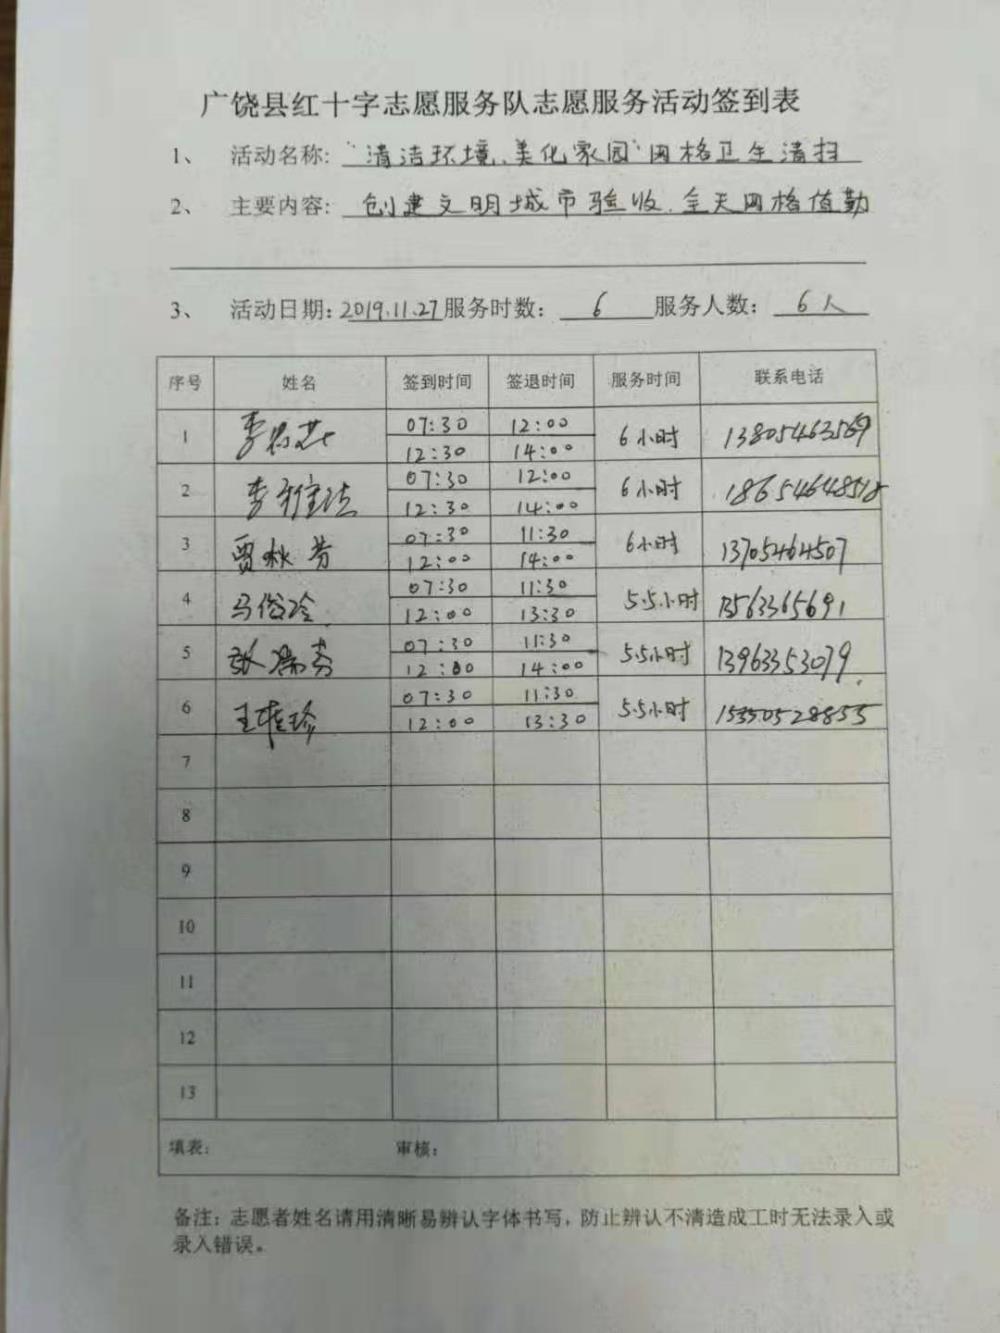 广饶县红十字志愿服务队志愿服务活动签到表
1、 活动名称: “清洁环境、美化家园”网格卫生清扫
2、 主要内容: 创建文明城市验收.全天网格值勤
3、 活动日期: 2019.11.27 服务时数: 6 服务人数: 6人
序号 姓名 签到时间 签退时间 服务时间 联系电话
1 07:30 12:00 6小时 13805463569
12:30 14:00
2 李 07:30 12:00 6小时 18654648518
12:30 14:00
3 贾秋芳 07:30 11:30 6小时 13705464507
12:00 14:00
4 马俊玲 07:30 11:30 5.5小时 13563365691
12:00 13:30
5 张瑞芳 07:30 11:30 5.5小时 13963353079
12:00 14:00
6 王桂珍 07:30 11:30 5.5小时 15350528855
12:00 13:30
7
8
9
10
11
12
13
填表: 审核:
备注:志愿者姓名请用清晰易辨认字体书写,防止辨认不清造成工时无法录入或
录入错误。